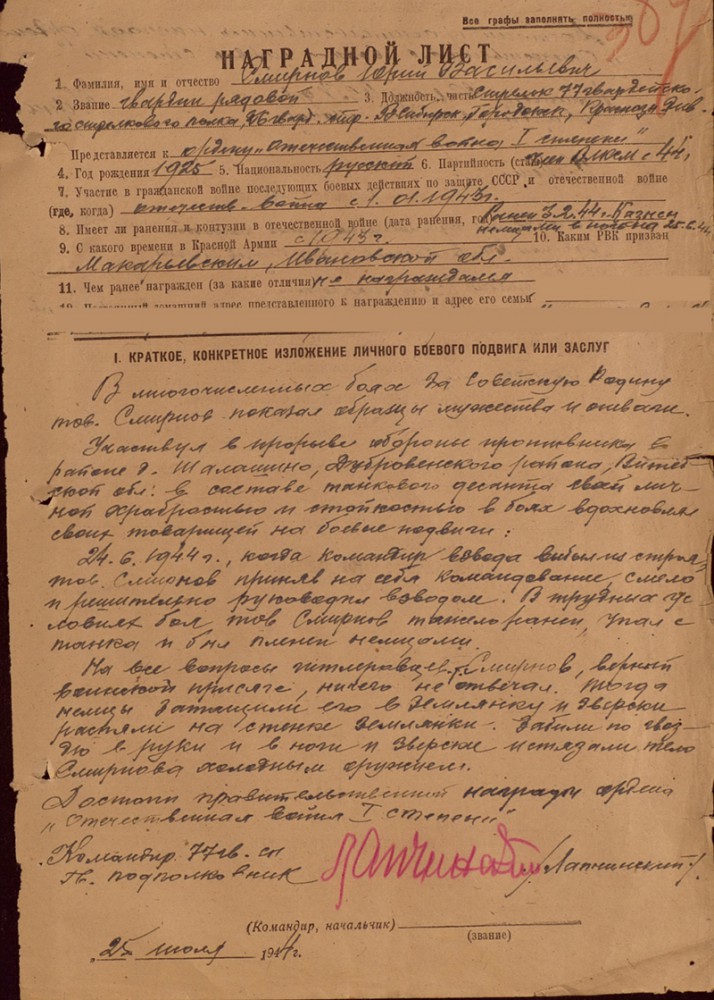 Все графы заполнять полностью
387
НАГРАДНОЙ ЛИСТ
1. Фамилия, имя и отчество Смирнов Юрий Васильевич
2 Звание гвардии рядовой 3. Должность, часть Стрелок 77 гвардейско-
го стрелкового полка, 26 гвард. стр. В Сибирск. Городокск. Краснозн. див.
Представляется к ордену „Отечественная война I степени"
4. Год рождения 1925 5. Национальность русский 6. Партийность член ВЛКСМ с 44г.
7. Участие в гражданской войне последующих боевых действиях по защите СССР и отечественной войне
(где, когда) отечеств. война с 1.01.1943г.
8. Имеет ли ранения и контузии в отечественной войне (дата ранения, Ранен 3.2.44г. Казнен
немцами 25.6.44
9. С какого времени в Красной Армии с 1943г. 10. Каким РВК призван
Макарьевским, Ивановской обл.
11. Чем ранее награжден (за какие отличия) не награждался
домашний адрес представленного к награждению и адрес его семьи
I. КРАТКОЕ, КОНКРЕТНОЕ ИЗЛОЖЕНИЕ ЛИЧНОГО БОЕВОГО ПОДВИГА ИЛИ ЗАСЛУГ
В многочисленных боях за Советскую Родину
тов. Смирнов показал образцы мужества и отваги.
Участвуя в прорыве обороны противника в
районе д. Шалашино, Дубровенского района, Витеб-
ской обл. в составе танкового десанта своей лич-
ной храбростью и стойкостью в боях вдохновлял
своих товарищей на боевые подвиги:
24.6.1944г., когда командир взвода выбыл из строя,
тов. Смирнов приняв на себя командование, смело
и решительно руководил взводом. В трудных ус-
ловиях боя тов Смирнов тяжело ранен, упал с
танка и был пленен немцами.
На все вопросы гитлеровцев т. Смирнов, верный
воинской присяге, ничего не отвечал. Тогда
немцы затащили его в землянку и зверски
распяли на стенке землянки. Забили по гвоз-
дю в руки и в ноги и зверски истязали тело
Смирнова холодным оружием.
Достоин правительственной награды ордена
„Отечественная война I степени"
Командир 77 гв. сп
Гв. подполковник Лапчинский /Лапчинский/
(Командир, начальник)
(звание)
25 июля 1944г.